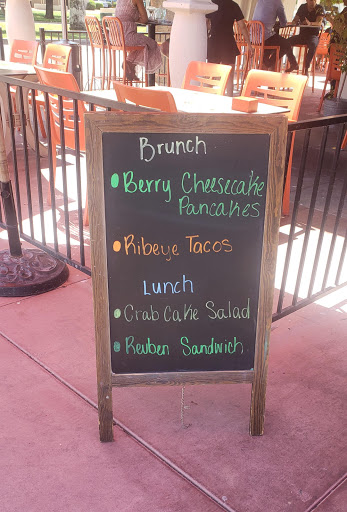 Brunch
• Berry Cheesecake
Pancakes
• Ribeye Tacos
Lunch
• Crab Cake Salad
• Reuben Sandwich